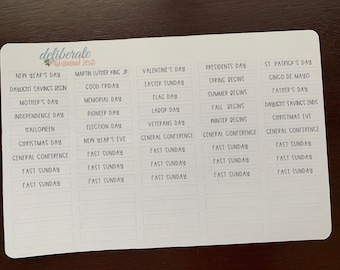 deliberate
NEW YEAR'S DAY MARTIN LUTHER KING JR VALENTINE'S DAY PRESIDENTS DAY ST. PATRICK'S DAY
DAYLIGHT SAVINGS BEGIN GOOD FRIDAY EASTER SUNDAY SPRING BEGINS CINCO DE MAYO
MOTHER'S DAY MEMORIAL DAY FLAG DAY SUMMER BEGINS FATHER'S DAY
INDEPENDENCE DAY PIONEER DAY LABOR DAY FALL BEGINS DAYLIGHT SAVINGS ENDS
HALLOWEEN ELECTION DAY VETERANS DAY WINTER BEGINS CHRISTMAS EVE
CHRISTMAS DAY NEW YEAR'S EVE GENERAL CONFERENCE GENERAL CONFERENCE GENERAL CONFERENCE
GENERAL CONFERENCE FAST SUNDAY FAST SUNDAY FAST SUNDAY FAST SUNDAY
FAST SUNDAY FAST SUNDAY FAST SUNDAY FAST SUNDAY FAST SUNDAY
FAST SUNDAY FAST SUNDAY FAST SUNDAY FAST SUNDAY FAST SUNDAY